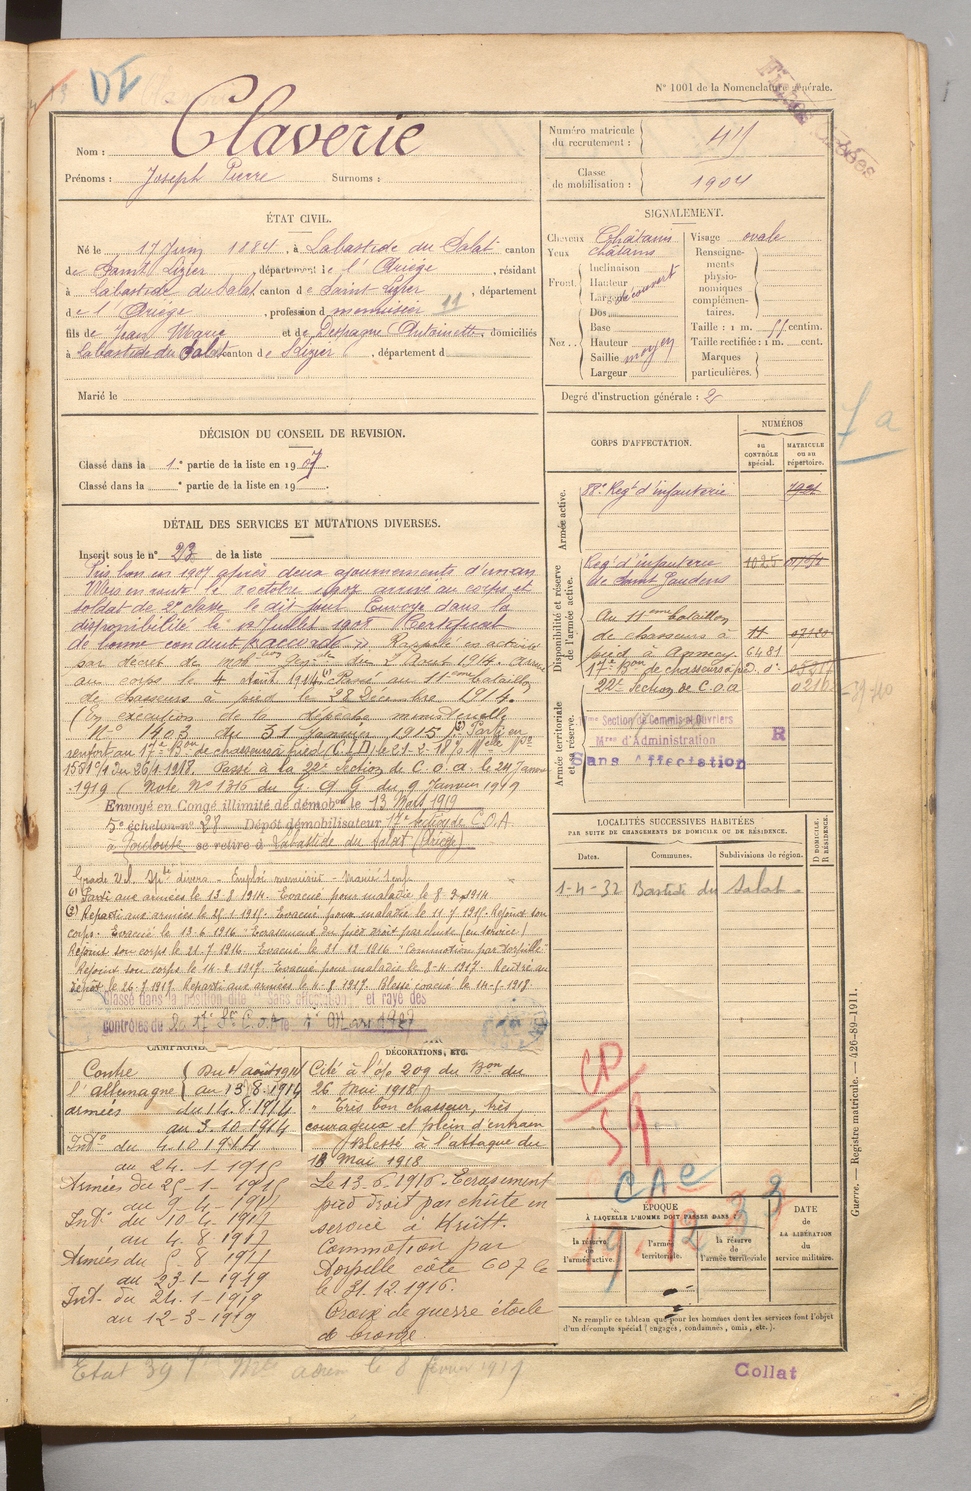 DI
N° 1001 de la Nomenclature générale.
Nom : Claverie
Prénoms : Joseph Pierre Surnoms :
Numéro matricule du recrutement :
Classe de mobilisation : 1904
ÉTAT CIVIL.
Né le 17 Juin 1884, à Labastide du Salat canton
de Saint Lizier, département de l'Ariége, résidant
à Labastide du Salat canton de Saint-Lizier, département
de l'Ariége, profession de menuisier 11
fils de Jean Marie et de Despagne Antoinette, domiciliés
à Labastide du Salat canton de St Lizier, département d
Marié le
SIGNALEMENT.
Cheveux Châtains
Yeux châtains
Front. Inclinaison
Hauteur
Largeur découvert
Nez.. Dos
Base
Hauteur
Saillie moyen
Largeur
Visage ovale
Renseignements physionomiques complémentaires.
Taille : 1 m. 55 centim.
Taille rectifiée : 1 m. cent.
Marques particulières.
Degré d'instruction générale : 2
DÉCISION DU CONSEIL DE REVISION.
Classé dans la 1e partie de la liste en 1907.
Classé dans la e partie de la liste en 19
DÉTAIL DES SERVICES ET MUTATIONS DIVERSES.
Inscrit sous le n° 23 de la liste
Pris bon en 1907 après deux ajournements d'un an
Mis en route le 8 octobre 1907 arrivé au corps et
soldat de 2e classe le dit jour. Envoyé dans la
disponibilité le 12 Juillet 1908 Certificat
de bonne conduite accordé. Rappelé en activité
par décret de mobon Gen du 2 Août 1914. Arrivé
au corps le 4 août 1914 (1) Passé au 11eme bataillon
de chasseurs à pied le 28 Décembre 1914.
(En exécution de la dépêche ministérielle
N° 1403 du 31 janvier 1915) (2) Parti en
renfort au 17e Bon de chasseurs à pied le 21-2-18
1581 9/1 du 26/1 1918. Passé à la 22e Section de C.O.A. le 24 Janvier
1919 (Note N° 1316 du G Q G du 9 Janvier 1919
Envoyé en Congé illimité de démobon le 13 Mars 1919
5e échelon n° 28 Dépôt démobilisateur 17e section de C.O.A.
à Toulouse se retire à Labastide du Salat (Ariège)
(1) Parti aux armées le 13 8 1914. Evacué pour maladie le 8-9-1914
(2) Reparti aux armées le 25 1 1915. Evacué pour maladie le 11 7 1915. Rejoint son
corps. Evacué le 13-6 1916. Ecrasement du pied droit par chute (en service)
Rejoint son corps le 21-7 1916. Evacué le 31 12 1916. Commotion par torpille
Rejoint son corps le 14-2 1917. Evacué pour maladie le 8-4 1917. Rentré au
dépôt le 26-7 1917. Reparti aux armées le 4-8 1917. Blessé évacué le 14-5 1918
Classé dans la position dite "Sans affectation" et rayé des
contrôles du
CAMPAGNES
Contre l'allemagne du 4 août 1914
au 13.8.1914
armées du 14.8.1914
au 3.10.1914
Intr du 4.10.1914
au 24.1.1915
Armées du 25-1-1915
au 9-4-1917
Intr du 10-4-1917
au 4.8.1917
Armées du 5.8 1917
au 23-1-1919
Intr. du 24.1-1919
au 12-3-1919
DÉCORATIONS, ETC.
Cité à l'o/o 209 du Bon du
26 Mai 1918
"Très bon chasseur, très
courageux et plein d'entrain
Blessé à l'attaque du
18 Mai 1918
Le 13.6.1916. Ecrasement
pied droit par chute en
service à Krutt.
Commotion par
torpille cote 607 le
le 31.12.1916.
Croix de guerre étoile
de bronze.
CORPS D'AFFECTATION.
NUMÉROS
au CONTRÔLE spécial.
MATRICULE ou au répertoire.
Armée active.
88e Regt d'infanterie
Disponibilité et réserve de l'armée active.
Regt d'infanterie
de Saint Gaudens 1025
Au 11eme bataillon
de chasseurs à 11
pied à Annecy 6481
17e Bon de chasseurs à pied
Armée territoriale et sa réserve.
22e Section de C.O.A
Section de Commis et Ouvriers
Mres d'Administration R
Sans Affectation
7 a
LOCALITÉS SUCCESSIVES HABITÉES
PAR SUITE DE CHANGEMENTS DE DOMICILE OU DE RÉSIDENCE.
Dates. Communes. Subdivisions de région. D DOMICILE. R RÉSIDENCE.
1-4-32 Bastide du Salat
CP
59
CAC
19 12 33
ÉPOQUE
À LAQUELLE L'HOMME DOIT PASSER DANS :
la réserve de l'armée active.
l'armée territoriale.
la réserve de l'armée territoriale
DATE DE LA LIBÉRATION du service militaire.
Ne remplir ce tableau que pour les hommes dont les services font l'objet
d'un décompte spécial (engagés, condamnés, omis, etc.).
Guerre. — Registre matricule. — 426-89-1911.
Collat
le 8 février 1917